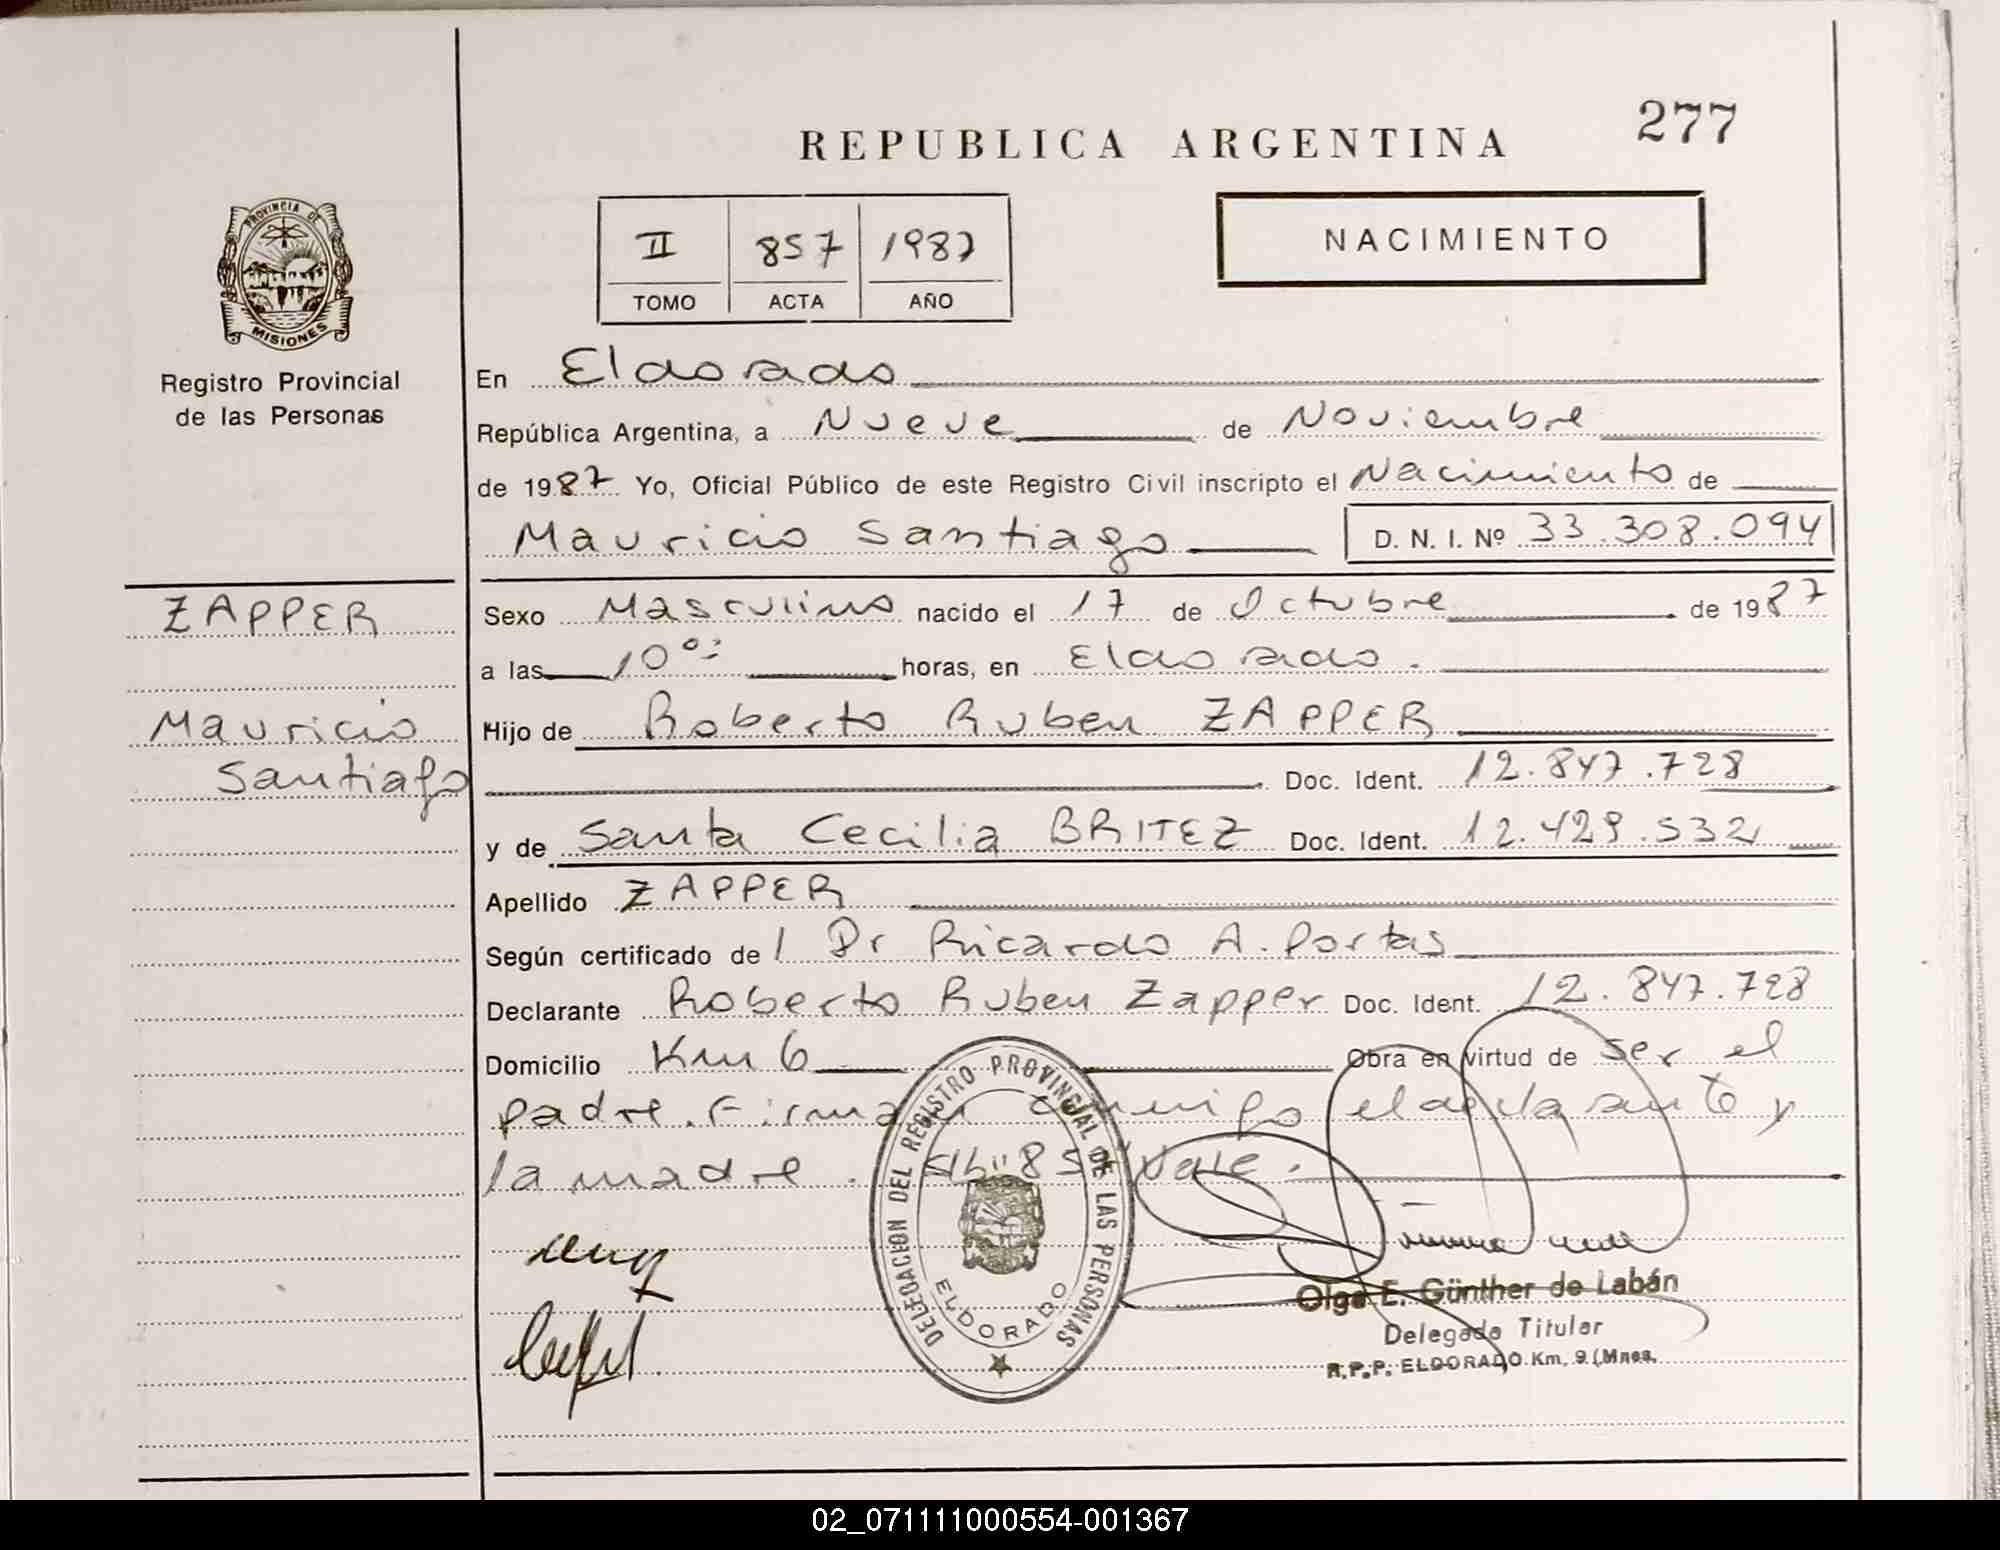 277
REPUBLICA ARGENTINA
PROVINCIA DE
MISIONES
Registro Provincial
de las Personas
II 857 1987
TOMO ACTA AÑO
NACIMIENTO
En Eldorado
República Argentina, a Nueve de Noviembre
de 1987 Yo, Oficial Público de este Registro Civil inscripto el Nacimiento de
Mauricio Santiago D. N. I. Nº 33.308.094
ZAPPER
Mauricio
Santiago
Sexo Masculino nacido el 17 de Octubre de 1987
a las 10⁰⁰ horas, en Eldorado.
Hijo de Roberto Ruben ZAPPER
Doc. Ident. 12.847.728
y de Santa Cecilia BRITEZ Doc. Ident. 12.429.532
Apellido ZAPPER
Según certificado de l Dr Ricardo A. Portas
Declarante Roberto Ruben Zapper Doc. Ident. 12.847.728
Domicilio Km 6 Obra en virtud de ser el
padre. Firman conmigo el declarante y
la madre. Vale.
DELEGACION DEL REGISTRO PROVINCIAL DE LAS PERSONAS
ELDORADO
Olga E. Günther de Labán
Delegada Titular
R.P.P. ELDORADO Km. 9 (Mnes.
02_071111000554-001367